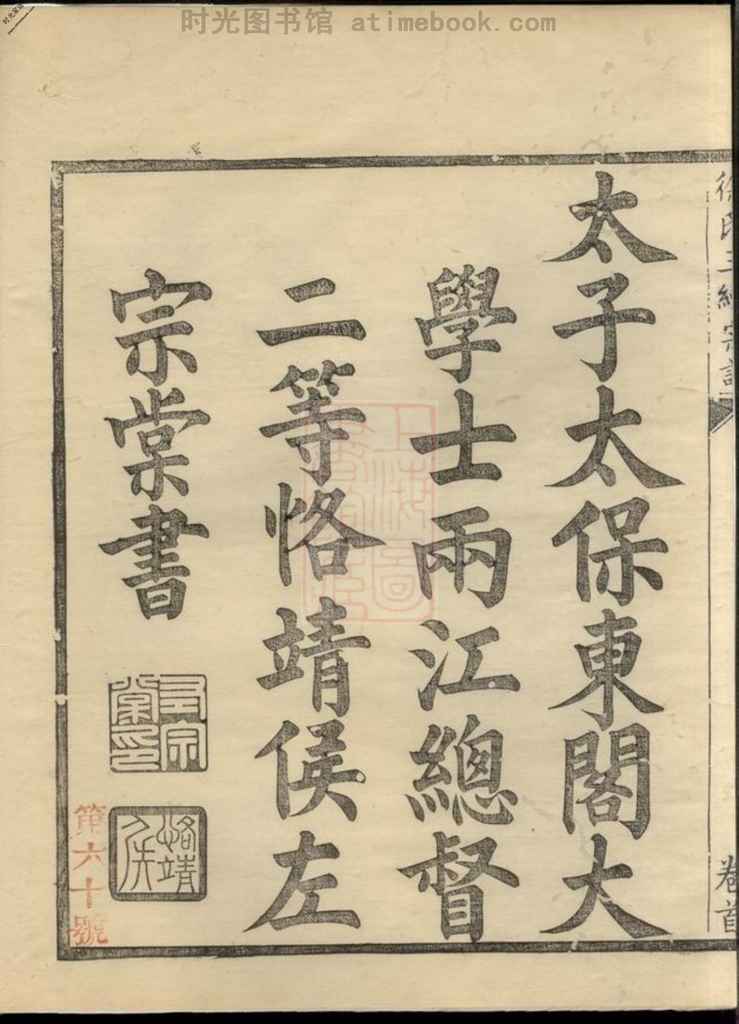 时光图书馆 atimebook.com
太子太保東閣大
學士兩江總督
二等恪靖侯左
宗棠書
左宗棠印
恪靖侯
第六十號
上海圖
卷首